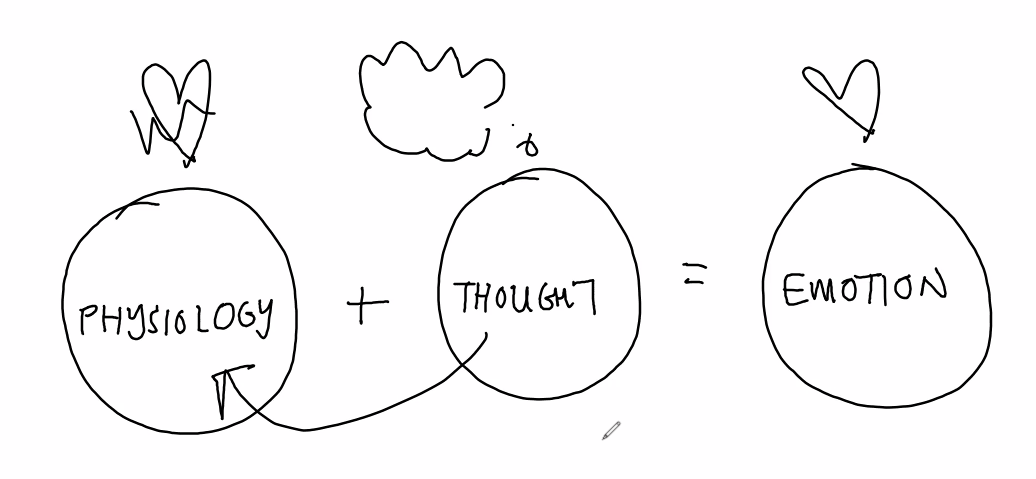 PHYSIOLOGY + THOUGHT = EMOTION